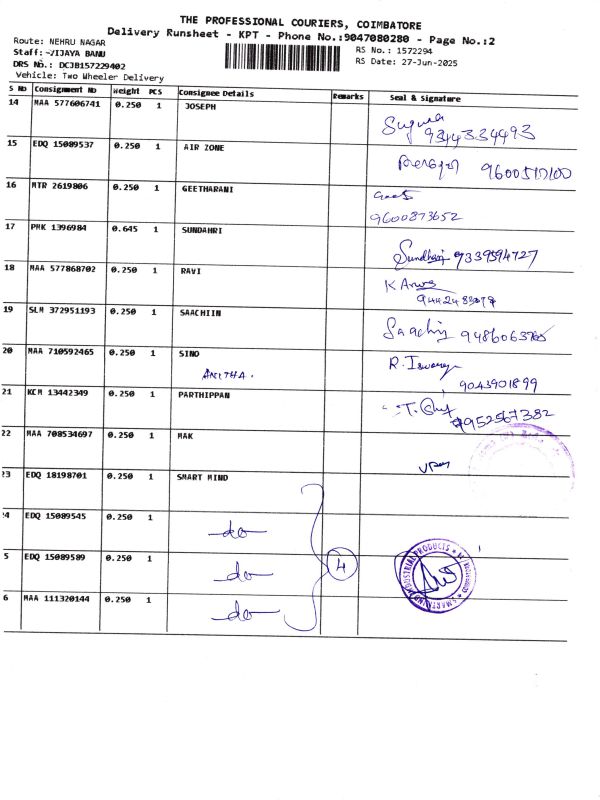 THE PROFESSIONAL COURIERS, COIMBATORE
Delivery Runsheet - KPT - Phone No.:9047080280 - Page No.:2
Route: NEHRU NAGAR
RS No.: 1572294
Staff: VIJAYA BANU
RS Date: 27-Jun-2025
DRS No.: DCJB157229402
Vehicle: Two Wheeler Delivery
S No Consignment No Weight PCS Consignee Details Remarks Seal & Signature
14 MAA 577606741 0.250 1 JOSEPH
9344334493
15 EDQ 15089537 0.250 1 AIR ZONE
16 MTR 2619806 0.250 1 GEETHARANI
9600873652
17 PMK 1396984 0.645 1 SUNDAHRI
9339594727
18 MAA 577868702 0.250 1 RAVI
19 SLM 372951193 0.250 1 SAACHIIN
20 MAA 710592465 0.250 1 SINO
ANITHA.
9043901899
21 KCM 13442349 0.250 1 PARTHIPPAN
9952567382
22 MAA 708534697 0.250 1 MAK
23 EDQ 18198701 0.250 1 SMART MIND
4 EDQ 15089545 0.250 1 do
5 EDQ 15089589 0.250 1 do 4
6 MAA 111320144 0.250 1 do
INDUSTRIAL PRODUCTS